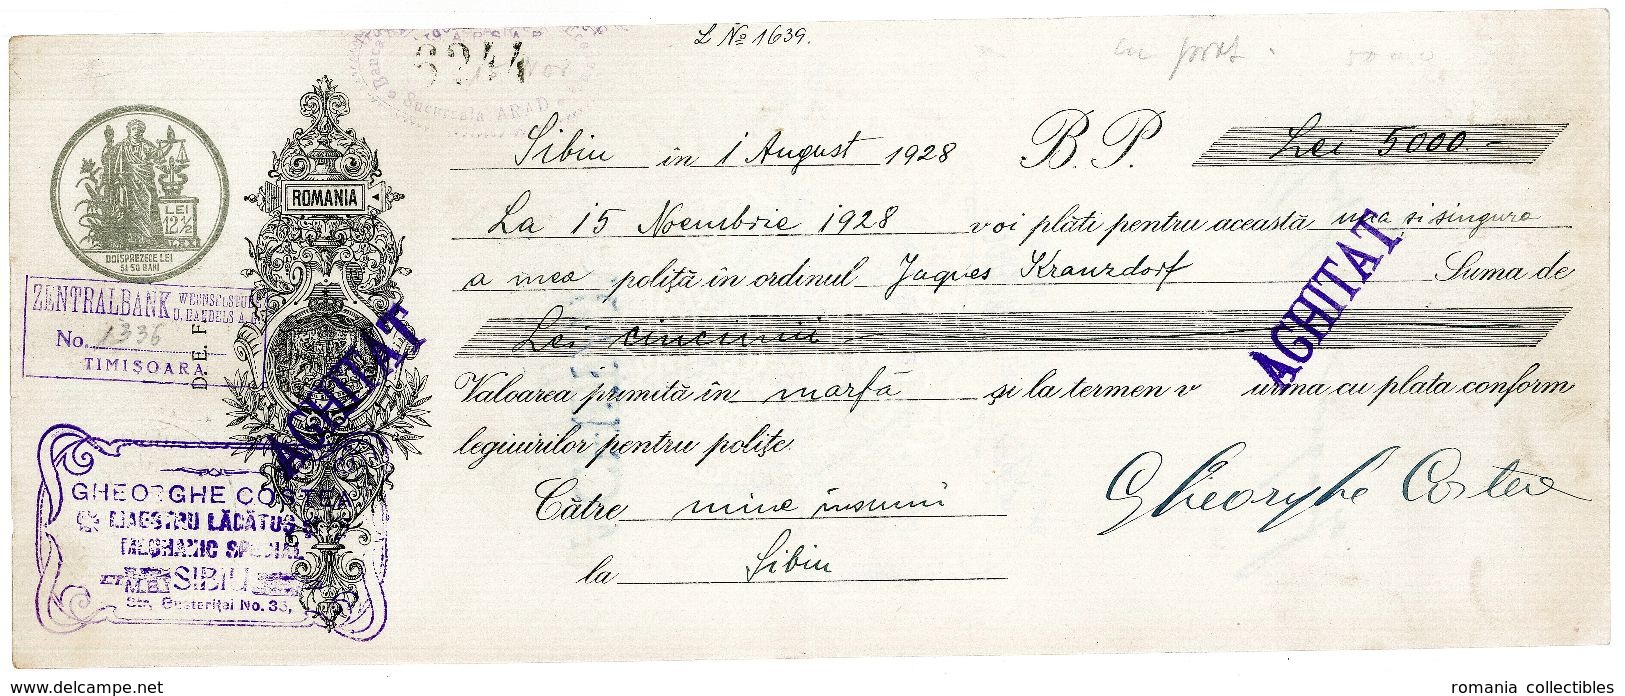 L № 1639.
3244
Banca
Sucursala ARAD
cu prot.
5000
Sibiu în 1 August 1928 B.P. Lei 5000-
ROMANIA
LEI
12 1/2
DOISPREZECE LEI
SI 50 BANI
La 15 Noembrie 1928 voi plăti pentru această una și singura
a mea poliță în ordinul Jaques Kranzdorf Suma de
Lei cincimii
Valoarea primită în marfă și la termen v urma cu plata conform
legiuirilor pentru polițe.
Către mine însumi
la Sibiu
Gheorghe Costea
ACHITAT
ACHITAT
ZENTRALBANK
U. HANDELS A.G.
No. 1336
TIMIȘOARA
D.E.F
GHEORGHE COSTEA
MAESTRU LĂCĂTUȘ
MECHANIC SPECIAL
SIBIU
Str. Gusteriței No. 33,
romania collectibles
www.delcampe.net